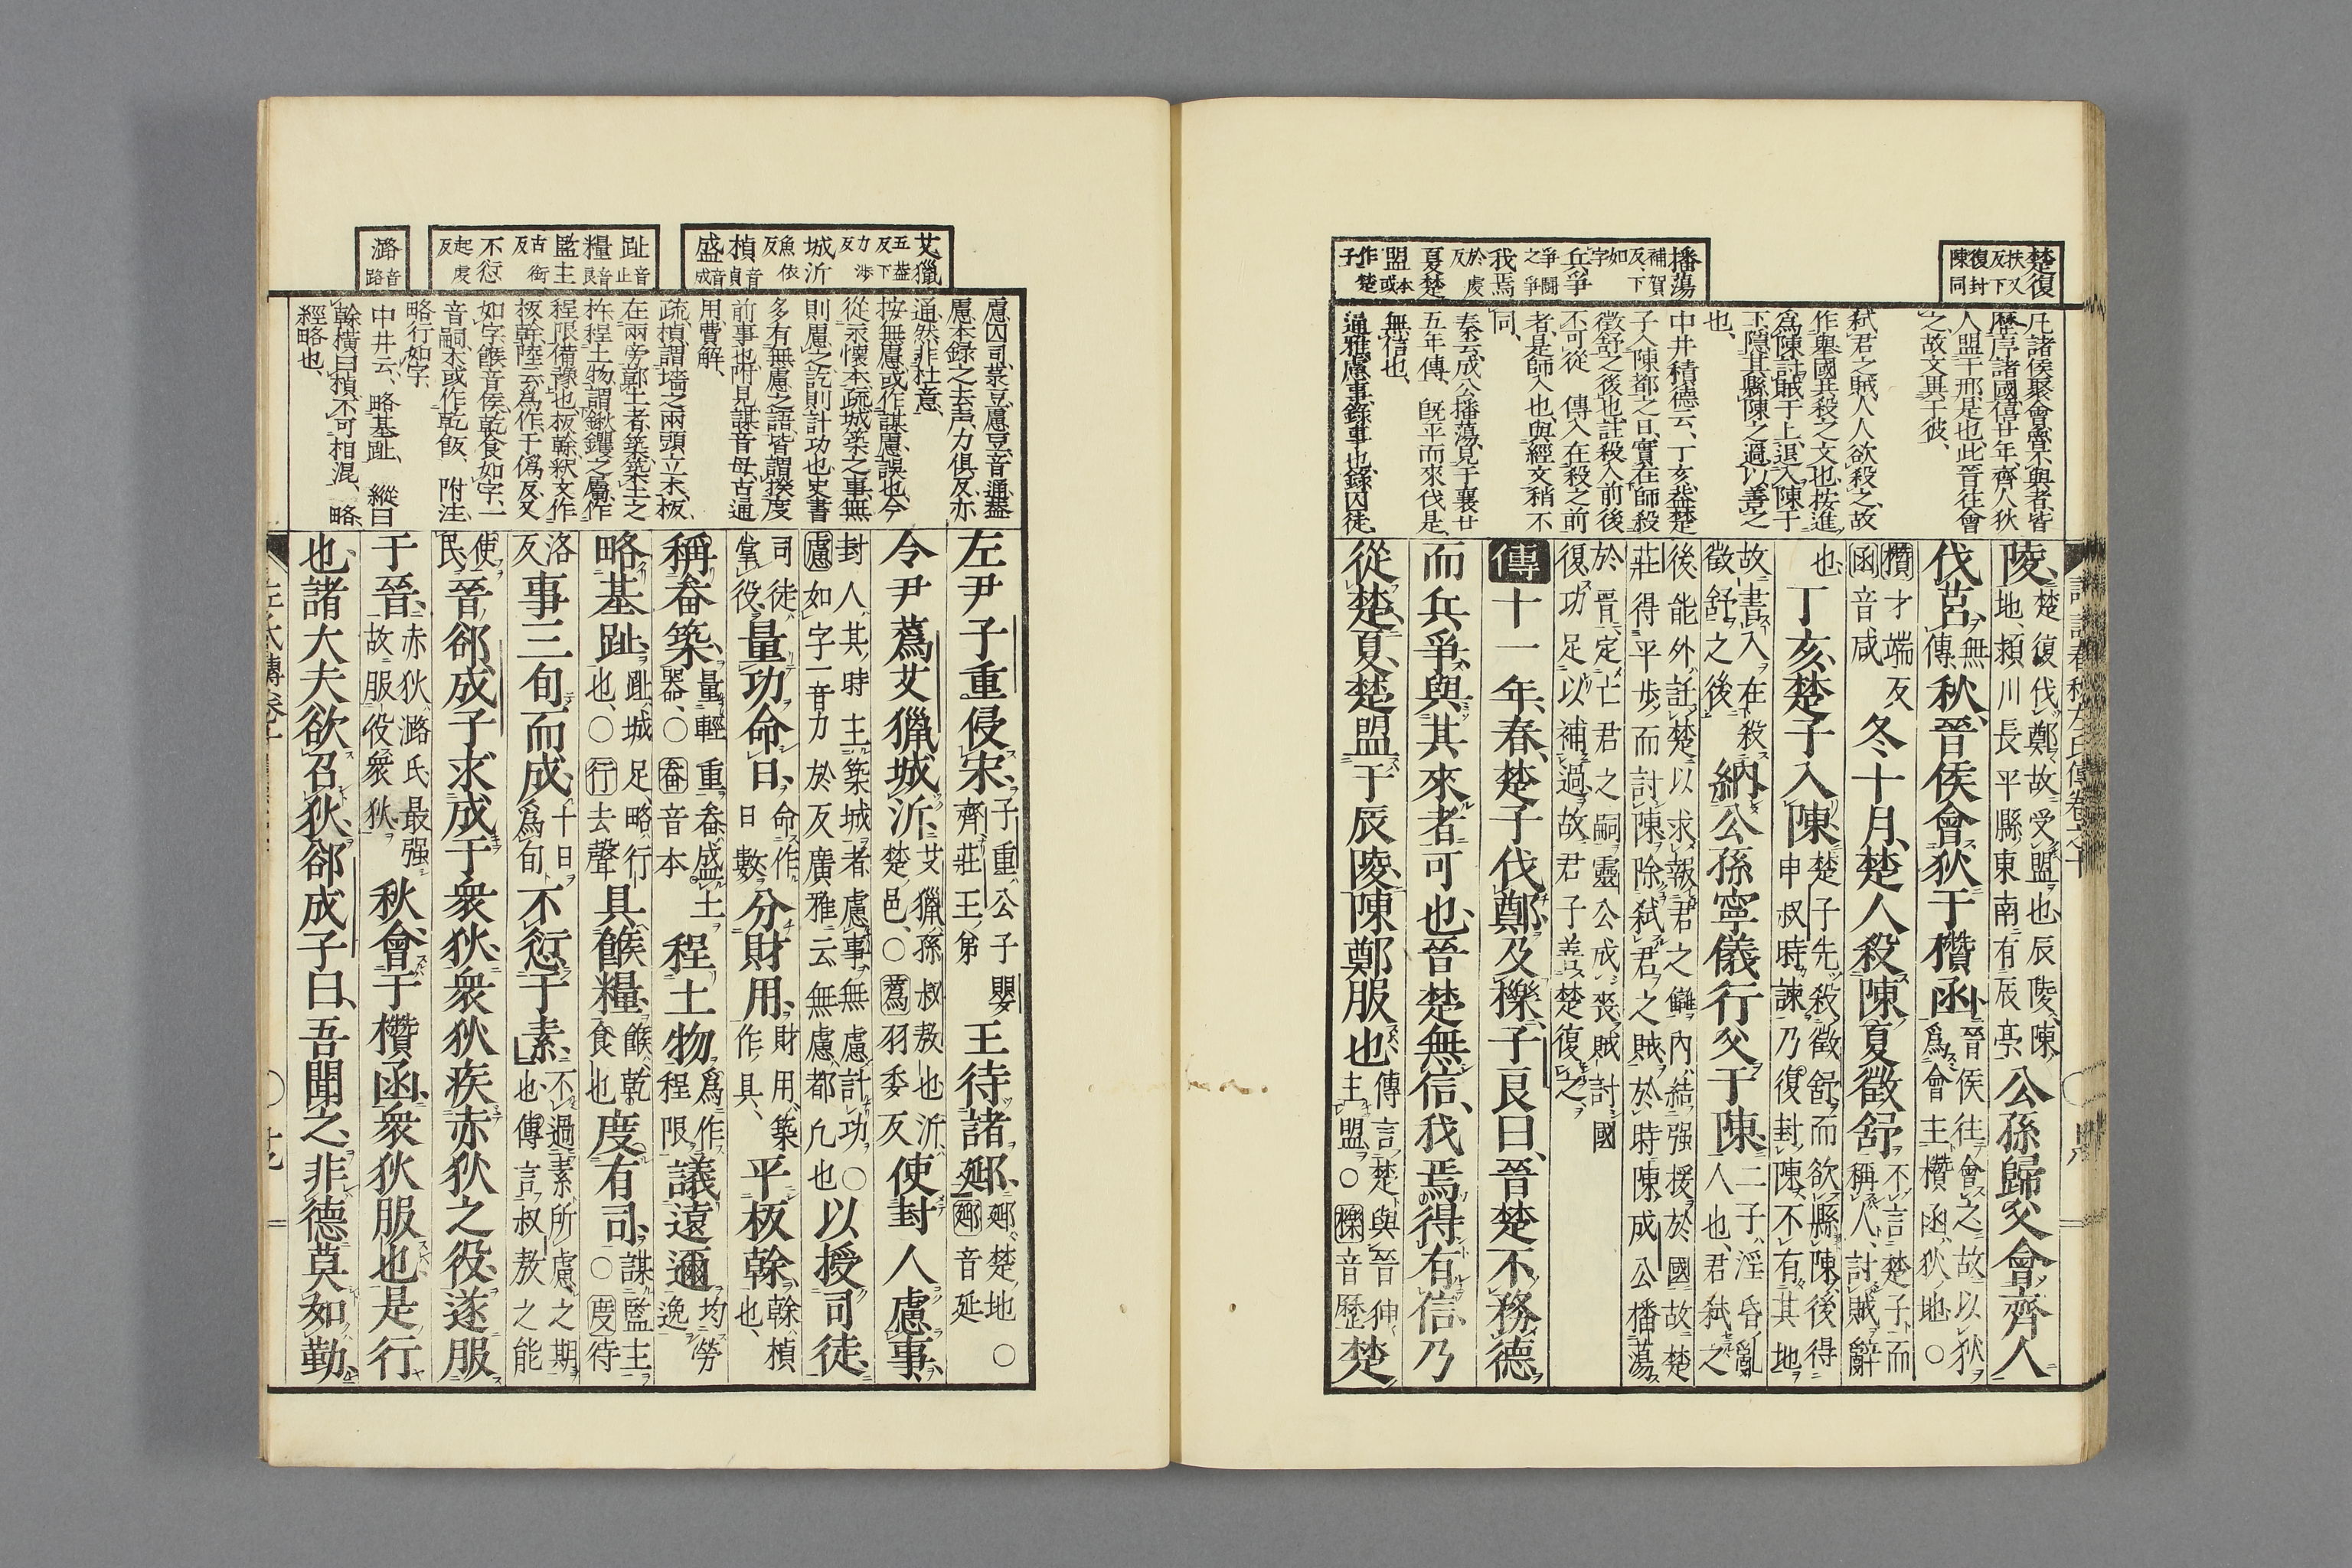 楚復 扶又反下復封陳同
播蕩 補賀反、下如字
兵爭 爭鬪之爭
我焉 於虔反
夏楚盟 本或作楚子
凡諸侯聚會魯不與者皆
歷序諸國僖廿年、齊人狄
人盟于邢是也此晉往會
之故文異于彼、
弑君之賊人人欲殺之、故
作舉國共殺之文也、按進
爲陳討賊于上、退入陳于
下、隱其縣陳之過、以善之
也、
中井積德云、丁亥、蓋楚
子入陳都之日、實在師殺
徵舒之後也註殺入前後
不可從 傳入在殺之前
者、是師入也、與經文稍不
同、
秦云、成公播蕩、見于襄廿
五年傳、旣平而來伐是、
無信也、
通雅慮事錄事也、錄囚徒、
陵、楚復伐鄭、故受盟也、辰陵、陳地、潁川長平縣東南有辰亭、公孫歸父會齊人
伐莒、無傳、秋、晉侯會狄于欑函、晉侯往會之、故以狄爲會主、欑函、狄地○
欑才端反函音咸冬十月、楚人殺陳夏徵舒、不言楚子而稱人、討賊辭
也、丁亥、楚子入陳、楚子先殺徵舒、而欲縣陳、後得申叔時諫、乃復封陳、不有其地
故書入在殺徵舒之後納公孫寧儀行父于陳、二子、淫昏亂人也、君弑之
後、能外託楚以求報君之讎、內結强援於國、故楚莊得平步而討陳、除弑君之賊、於時陳成公播蕩
於晉、定亡君之嗣、靈公成喪、賊討國復、功足以補過、故君子善楚復之、
傳十一年、春、楚子伐鄭、及櫟、子良曰、晉楚不務德、
而兵爭、與其來者可也、晉楚無信、我焉得有信、乃
從楚、夏、楚盟于辰陵、陳鄭服也、傳言楚與晉狎主盟、○櫟音歷楚
評註春秋左氏傳卷之十
艾獵 五蓋反下力涉反
城沂 魚依反
楨 音貞
盛 音成
趾 音止
糧 音良
監主 古銜反
不愆 起虔反
潞 音路
慮囚司、彔豆慮豆、音通、蓋
慮本錄之去声、力俱反、亦
通然非杜意、
按無慮或作謀慮、誤也、今
從永懷本、疏城築之事、無
則慮之訖則計功也、史書
多有無慮之語、皆謂揆度
前事也、附見謀音母、古通
用、費解、
疏、楨謂墻之兩頭立木、板
在兩旁鄣土者、築築土之
杵程土物、謂鍬钁之屬、作
程限備豫也、板榦、釈文作
板幹、陸云爲作于僞反、又
如字、餱音侯、乾食如字、一
音嗣、本或作乾飯、附注、
略行如字、
中井云、略基趾、縱曰
榦橫曰楨、不可相混、略、
經略也、
左尹子重侵宋、子重、公子嬰齊、莊王弟王待諸郔、郔、楚地○郔音延
令尹蔿艾獵城沂、艾獵、孫叔敖也、沂、楚邑、○蔿羽委反使封人慮事、
封人、其時主築城者、慮事、無慮計功○慮如字一音力於反廣雅云無慮、都凡也以授司徒、
司徒、掌役、量功命日、命作日數分財用、財用、築作具、平板榦、榦、楨也、
稱畚築、量輕重、畚、盛土器、○畚音本程土物、爲作程限議遠邇均勞逸
略基趾、趾、城足、略、行也、○行去聲具餱糧、餱、乾食也度有司、謀監主、○度待
洛反事三旬而成、十日爲旬不愆于素、不過素所慮之期也、傳言叔敖之能
使民晉郤成子求成于衆狄、衆狄疾赤狄之役、遂服
于晉、赤狄潞氏最强、故服役衆狄秋、會于欑函、衆狄服也、是行
也、諸大夫欲召狄、郤成子曰、吾聞之、非德莫如勤、